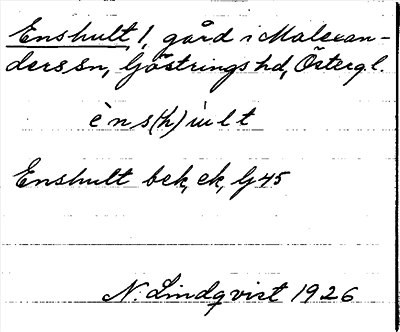 Enshult, 1, gård i Malexan-
ders sn, Göstrings hd, Östergl.
èns(h)ult
Enshult bek, ek, Gj 45
N. Lindqvist 1926